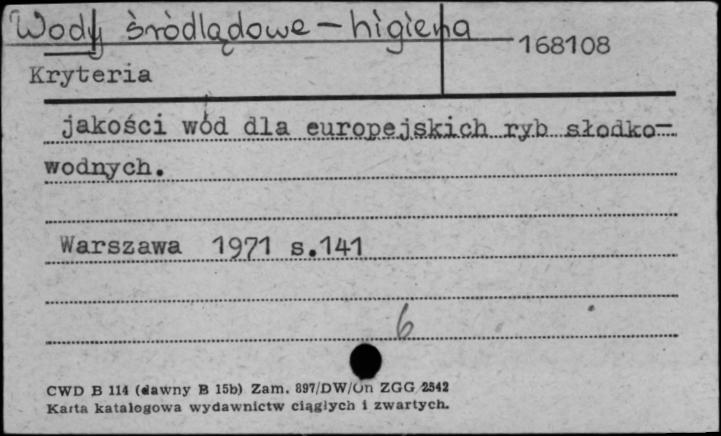 Wody śródlądowe - higiena
168108
Kryteria
jakości wód dla europejskich ryb słodko-
wodnych.
Warszawa 1971 s.141
6
CWD B 114 (dawny B 15b) Zam. 897/DW/On ZGG 2542
Karta katalogowa wydawnictw ciągłych i zwartych.